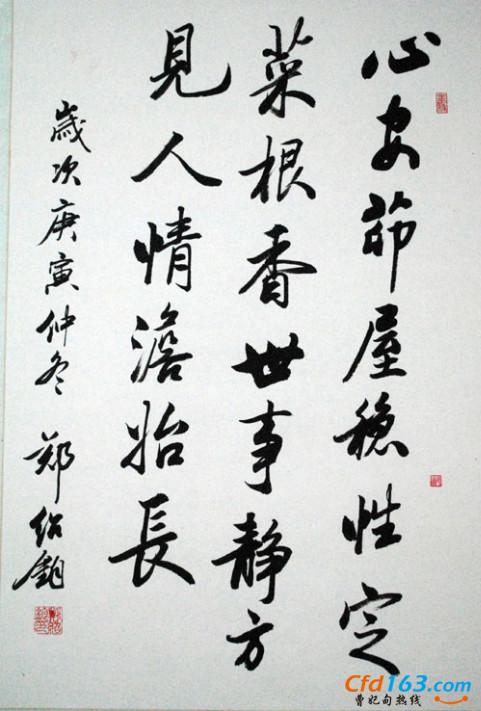 心安茆屋穏性定
菜根香世事静方
見人情澹始長
歲次庚寅仲冬 郑绍钧
Cfd163.com
曹妃甸热线